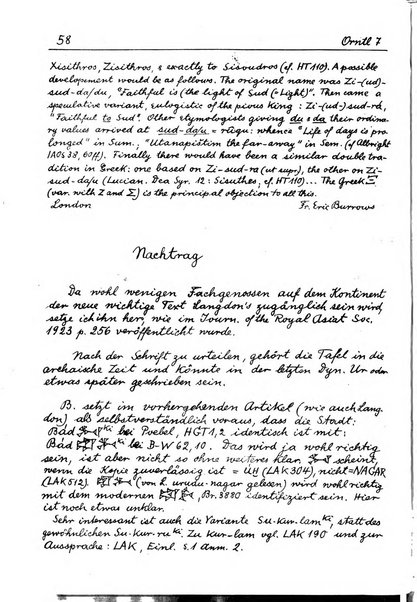 58 Orntl 7
Xisithros, Zisithros, & exactly to Sisoudros (cf. HT 110). A possible
development would be as follows. The original name was Zi-(ud)-
sud-da/du, "Faithful is (the light of Sud (= Light)". Then came a
speculative variant, eulogistic of the pious King: Zi-(ud-)sud-rá,
"Faithful to Sud". Other etymologists giving du & da their ordina-
ry values arrived at sud-da/u = rûqu: whence "Life of days is pro-
longed" in Sum., "Utanapištim the far-away" in Sem. (cf Albright
JAOS 38, 60ff). Finally there would have been a similar double tra-
dition in Greek: one based on Zi-sud-ra (ut supr.), the other on Zi-
sud-da/u (Lucian. Dea Syr. 12: Sisuthes, cf. HT 110)... The Greek Ξ
(var. with Z and Σ) is the principal objection to all this.
London Fr. Eric Burrows
Nachtrag
Da wohl wenigen Fachgenossen auf dem Kontinent
der neue wichtige Text Langdon's zugänglich sein wird,
setze ich ihn her, wie im Journ. of the Royal Asiat Soc.
1923 p. 256 veröffentlicht wurde.
Nach der Schrift zu urteilen, gehört die Tafel in die
archaische Zeit und könnte in der letzten Dyn. Ur oder
etwas später geschrieben sein.
B. setzt im vorhergehenden Artikel (wie auch Lang-
don) als selbstverständlich voraus, dass die Stadt:
Bàd ki bei Poebel, HGT 1,2 identisch ist mit:
Bàd ki bei B-W 62, 10. Das wird ja wohl richtig
sein, ist aber nicht so ohne weiteres klar. scheint,
wenn die Kopie zuverlässig ist = ÙH (LAK 304), nicht = NAGAR
(LAK 512). (von h. urudu-nagar gelesen) wird wohl richtig
mit dem modernen , Br. 3880 identifiziert sein. Hier
ist noch etwas unklar.
Sehr interessant ist auch die Variante Su-Kur-lam ki, statt des
gewöhnlichen Su-kur-ru ki. Zu Kur-lam vgl. LAK 190 und zur
Aussprache: LAK, Einl. § 1 Anm. 2.